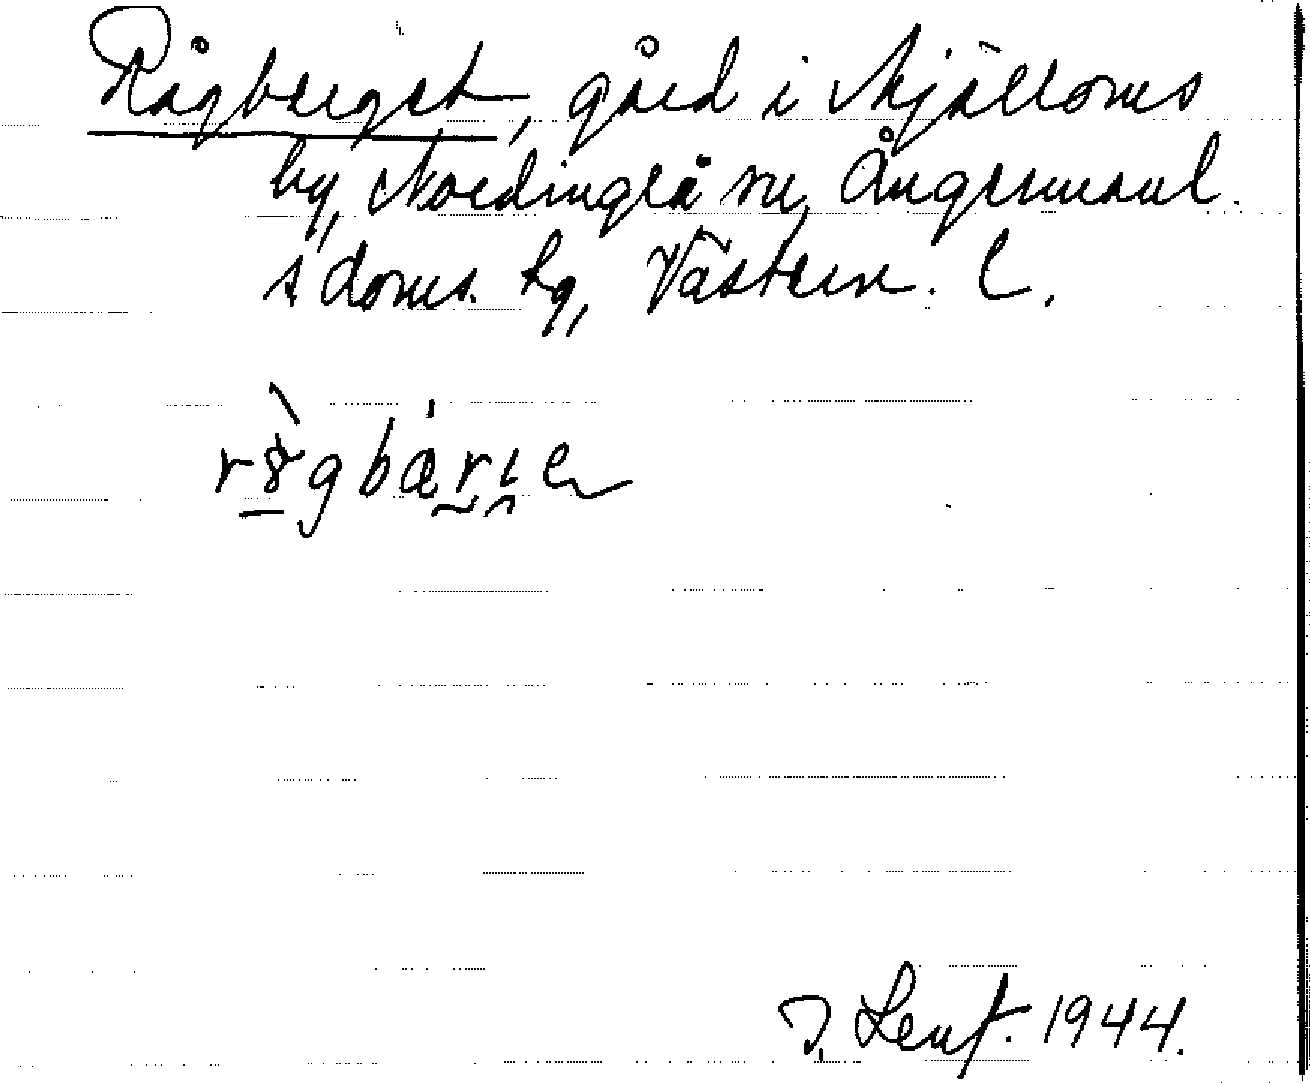 Rågberget, gård i Mjälloms
by, Nordingrå sn, Ångermanl.
s doms. hg, Västern. l.
rògbærıe
J. Lenf. 1944.